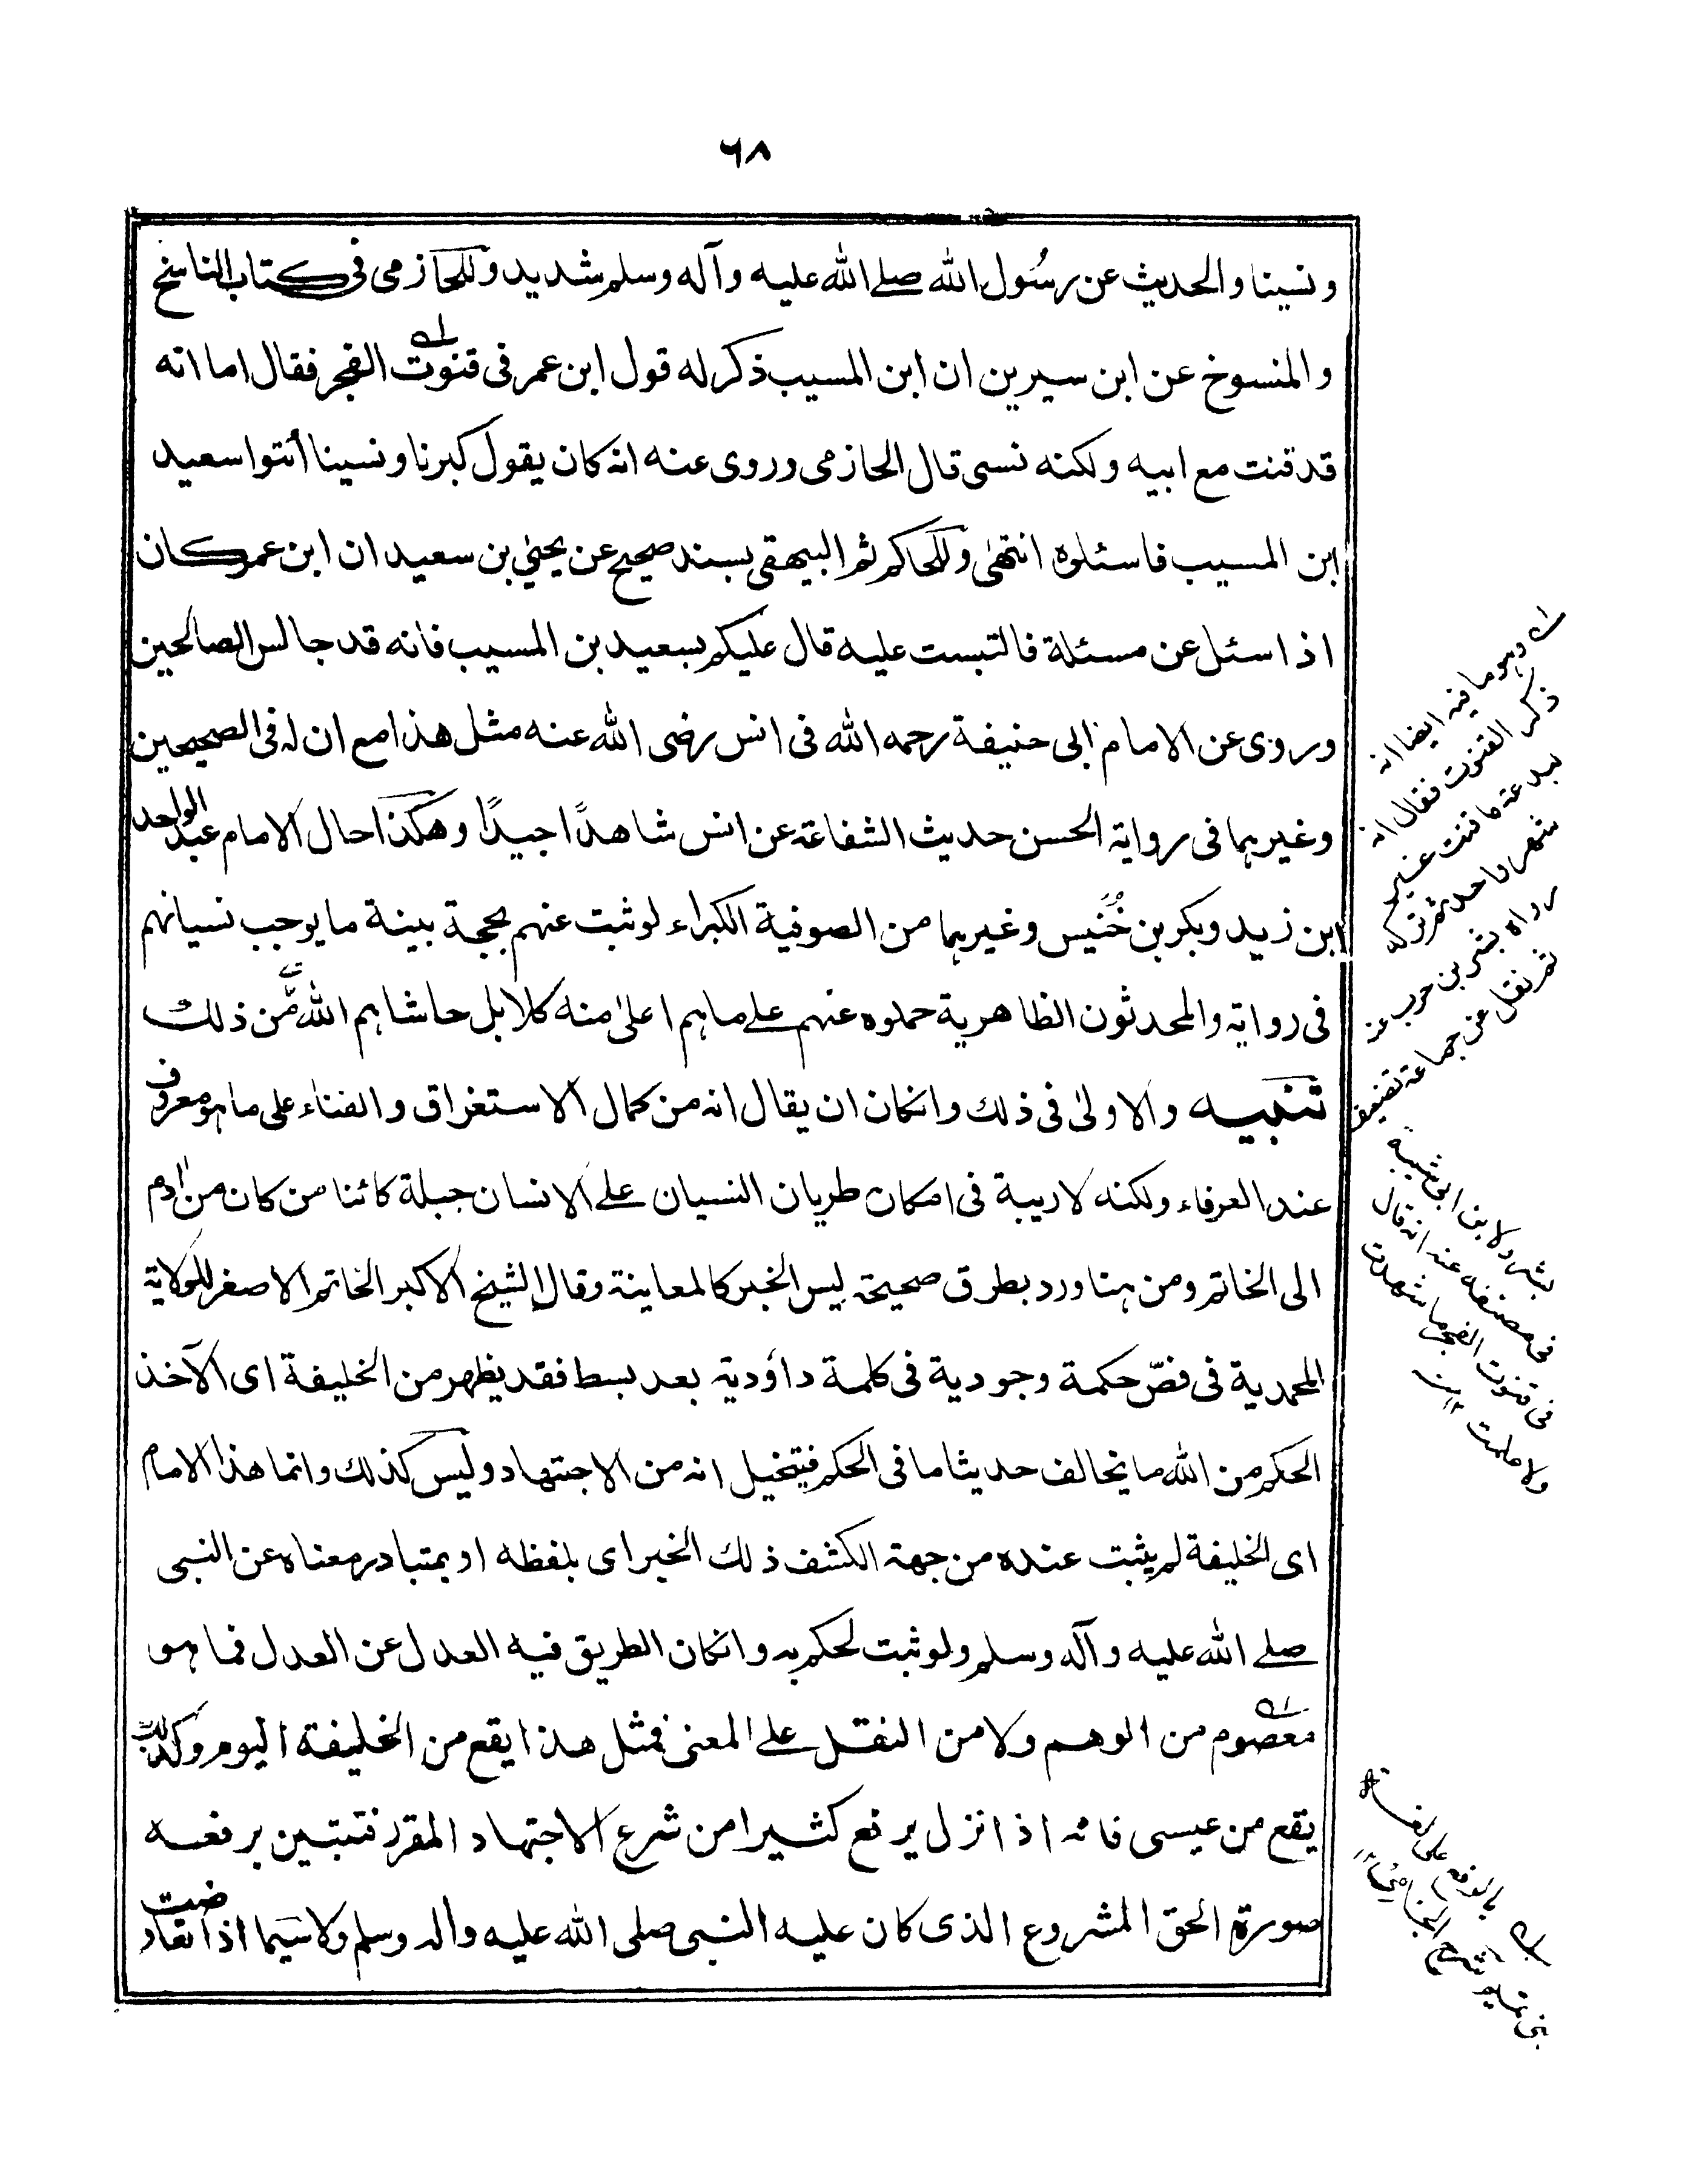 ٦٨
ونسينا والحديث عن رسُول الله صلے الله عليه وآله وسلم شديد وللحازمى فى كتاب الناسخ
والمنسوخ عن ابن سيرين ان ابن المسيب ذكر له قول ابن عمر فى قنوت الفجر فقال اما انه
قد قنت مع ابيه ولكنه نسى قال الحازمى وروى عنه انه كان يقول كبرنا ونسينا أئتوا سعيد
ابن المسيب فاسئلوه انتهىٰ وللحاكم ثم البيهقى بسند صحيح عن يحيىٰ بن سعيد ان ابن عمر كان
اذا سئل عن مسئلة فالتبست عليه قال عليكم بسعيد بن المسيب فانه قد جالس الصالحين
وروى عن الامام ابى حنيفة رحمه الله فى انس رضى الله عنه مثل هذا مع ان له فى الصحيحين
وغيرهما فى رواية الحسن حديث الشفاعة عن انس شاهدًا جيدًا وهكذا حال الامام عبد الواحد
ابن زيد وبكر بن خُنَيس وغيرهما من الصوفية الكبراء لو ثبت عنهم بحجة بينة ما يوجب نسيانهم
فى رواية والمحدثون الظاهرية حملوه عنهم علے ما هم اعلىٰ منه كلا بل حاشاهم الله عن ذلك
تنبيه والاولىٰ فى ذلك وانكان ان يقال انه من كمال الاستغراق والفناء على ما هو معروف
عند العرفاء ولكنه لا ريبة فى امكان طريان النسيان علے الانسان جبلة كائنا من كان من اٰدم
الى الخاتم ومن هنا ورد بطرق صحيحة ليس الخبر كالمعاينة وقال الشيخ الاكبر الخاتم الاصغر للولاية
المحمدية فى فصّ حكمة وجودية فى كلمة داؤدية بعد بسط فقد يظهر من الخليفة اى الآخذ
الحكم من الله ما يخالف حديثا ما فى الحكم فيتخيل انه من الاجتهاد وليس كذلك وانما هذا الامام
اى الخليفة لم يثبت عنده من جهة الكشف ذلك الخبر اى بلفظه او بمتبادر معناه عن النبى
صلے الله عليه وآله وسلم ولو ثبت لحكم به وانكان الطريق فيه العدل عن العدل فما هو
معصوم من الوهم ولا من النقل علے المعنى فمثل هذا يقع من الخليفة اليوم وكذلك
يقع من عيسى فانه اذا نزل يرفع كثيرا من شرع الاجتهاد المقرر فتبين برفعه
صورة الحق المشروع الذى كان عليه النبى صلى الله عليه واله وسلم ولا سيما اذا تعارضت
وهو ما فيه ايضا انه
ذكر القنوت فقال انه
لبدعة ما قنت غير
شهر واحد ثم تركه
رواه بشر بن حرب عنه
ثم نقل عن جماعة تضعيف
بشر ولابن ابى شيبة
فى مصنفه عنه انه قال
فى قنوت الفجر ما شهدت
ولا علمت ١٢
بالرفع على لغة
بنى تميم